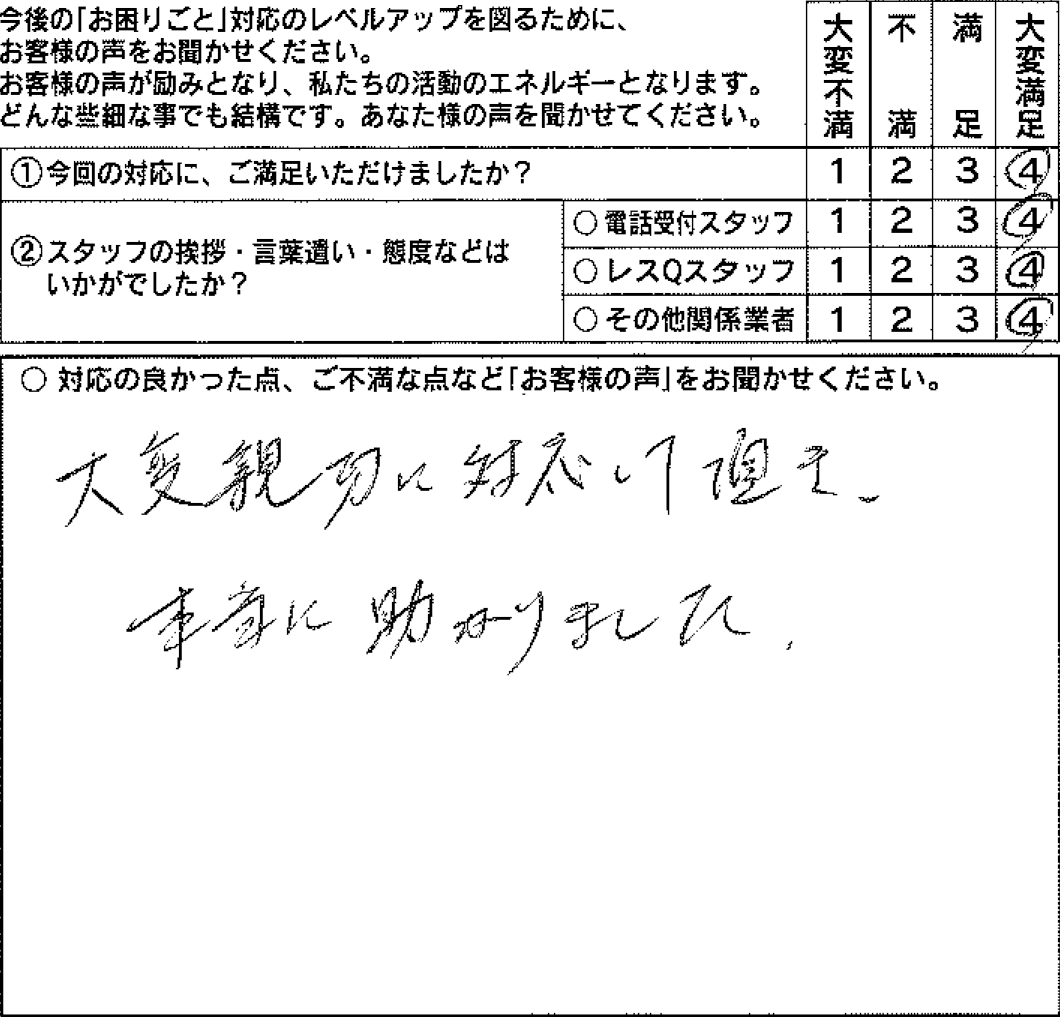 今後の「お困りごと」対応のレベルアップを図るために、
お客様の声をお聞かせください。
お客様の声が励みとなり、私たちの活動のエネルギーとなります。
どんな些細な事でも結構です。あなた様の声を聞かせてください。
大変不満 不満 満足 大変満足
①今回の対応に、ご満足いただけましたか？ 1 2 3 4
②スタッフの挨拶・言葉遣い・態度などは
いかがでしたか？
○電話受付スタッフ 1 2 3 4
○レスQスタッフ 1 2 3 4
○その他関係業者 1 2 3 4
○ 対応の良かった点、ご不満な点など「お客様の声」をお聞かせください。
大変親切に対応して頂き、
本当に助かりました。